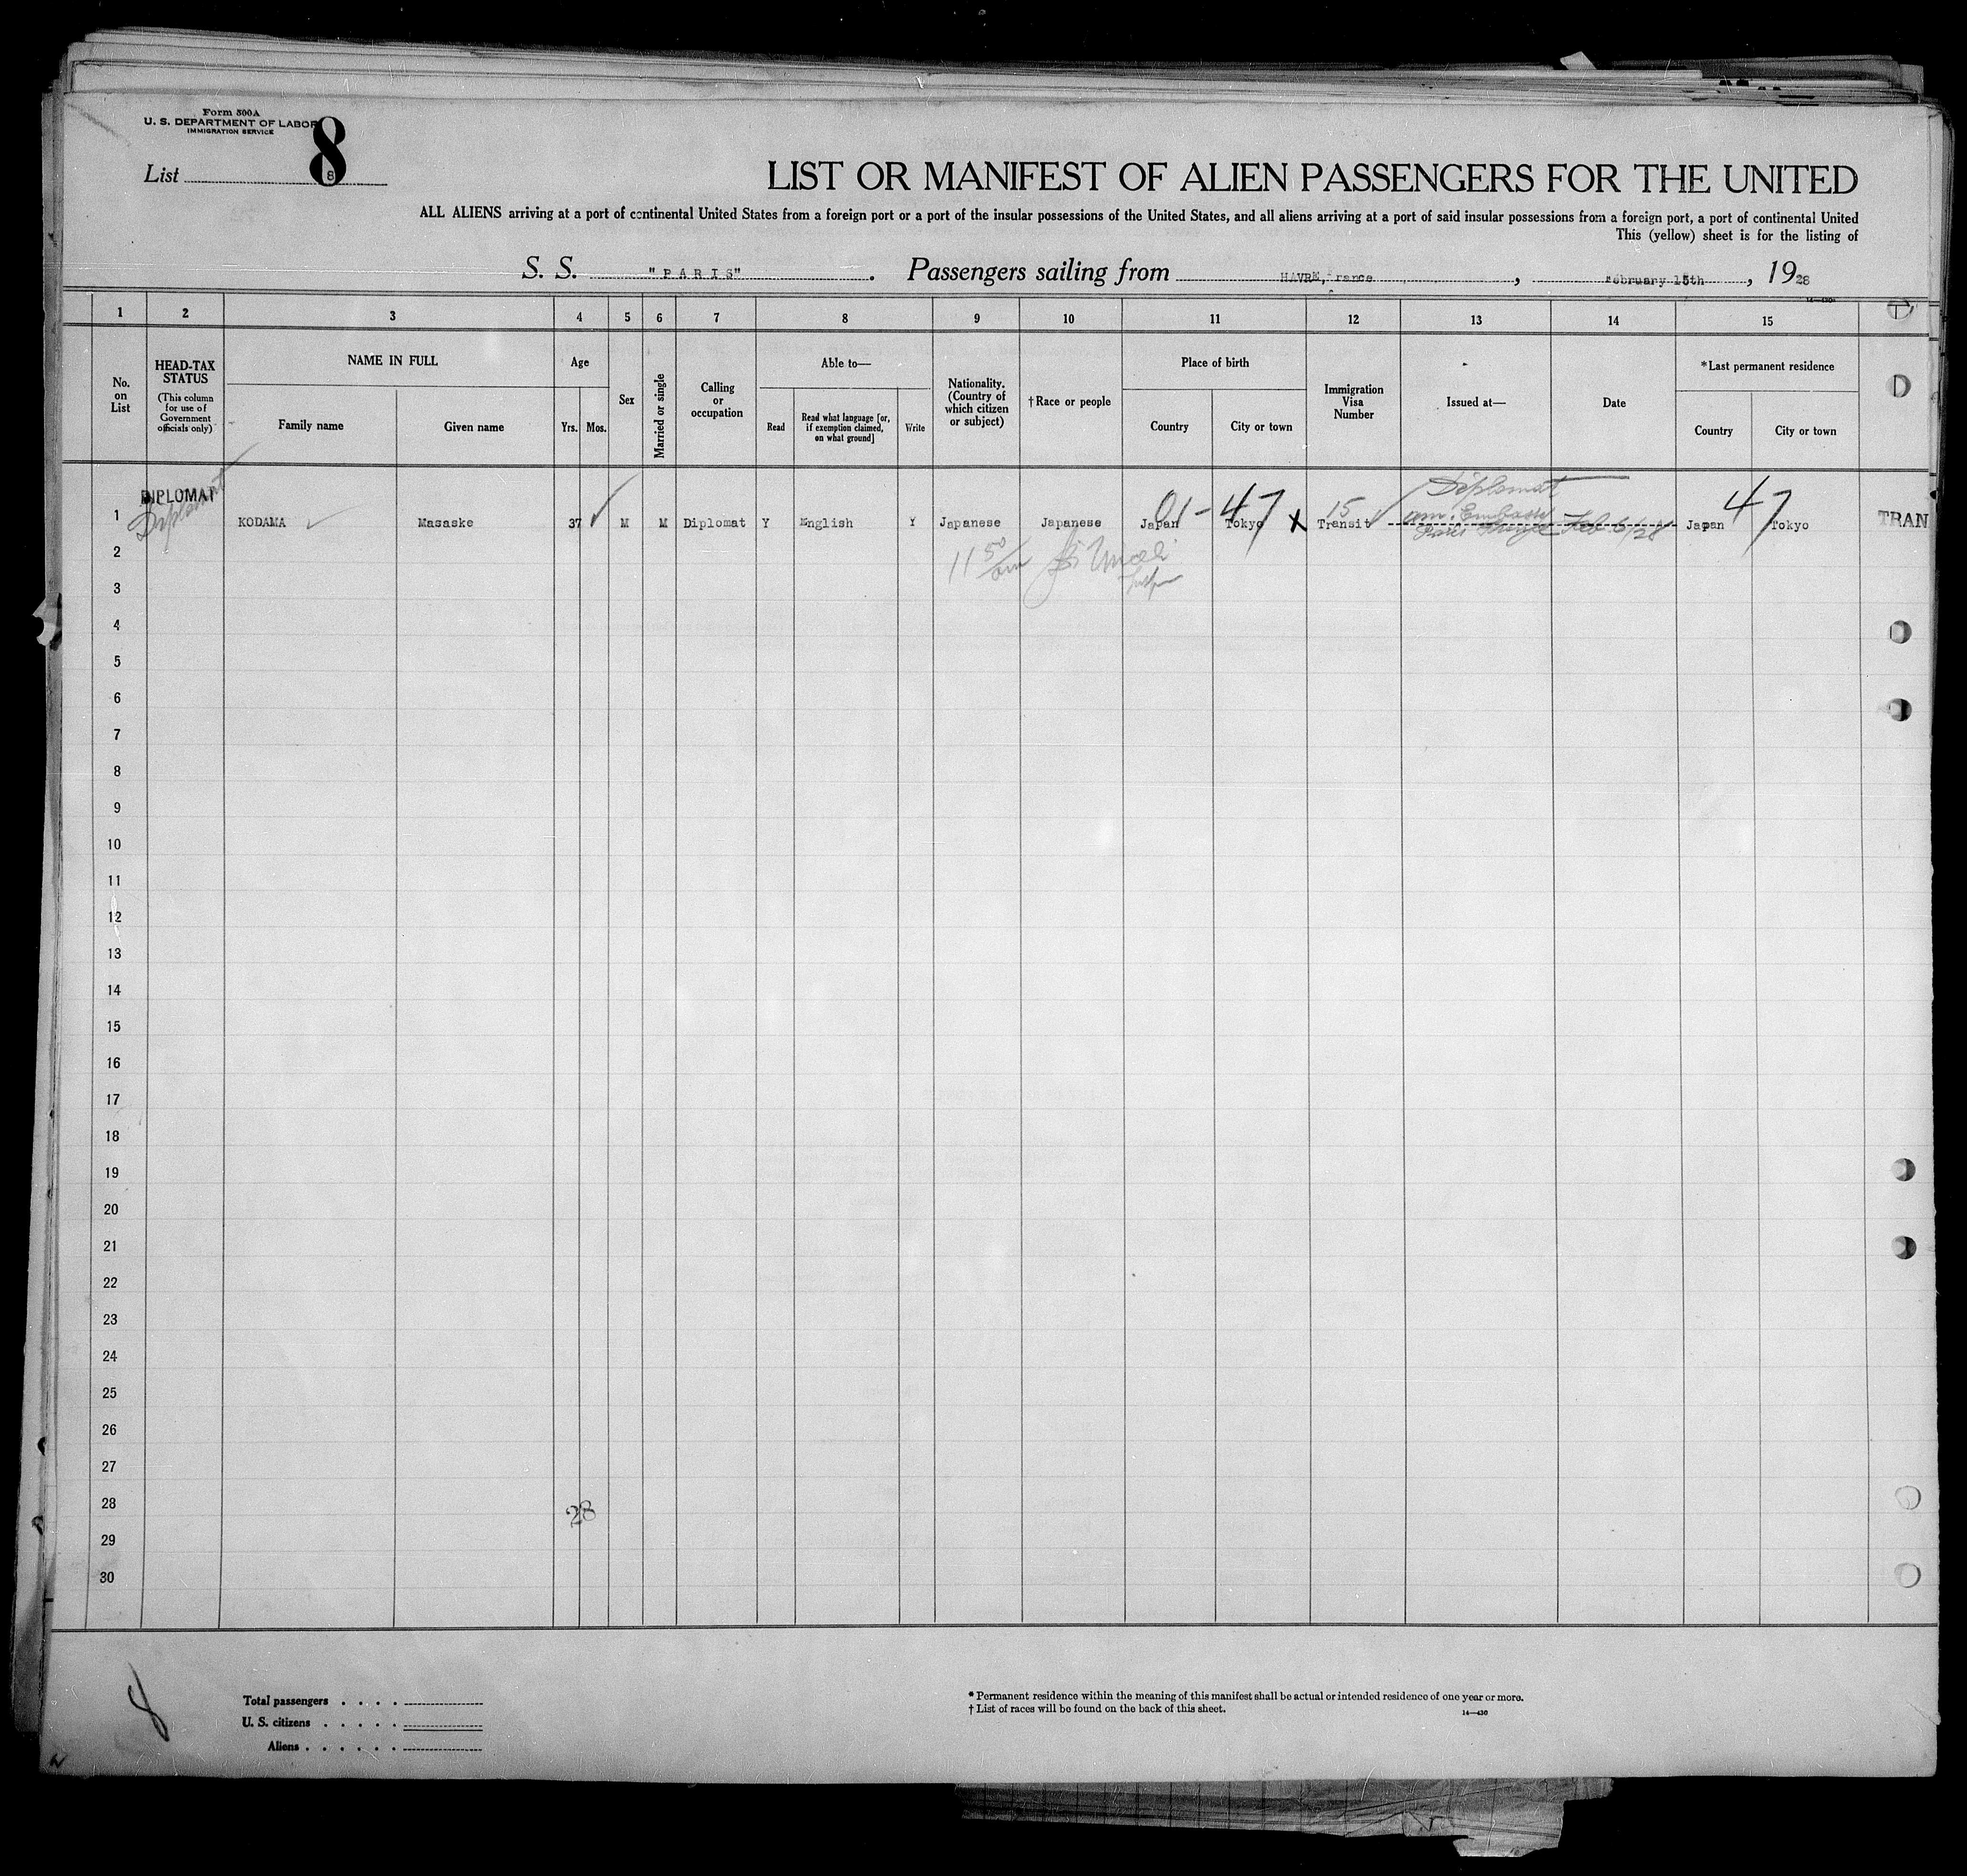 Form 500A
U. S. DEPARTMENT OF LABOR
IMMIGRATION SERVICE
8
List 8
LIST OR MANIFEST OF ALIEN PASSENGERS FOR THE UNITED
ALL ALIENS arriving at a port of continental United States from a foreign port or a port of the insular possessions of the United States, and all aliens arriving at a port of said insular possessions from a foreign port, a port of continental United
This (yellow) sheet is for the listing of
S. S. "PARIS". Passengers sailing from HAVRE, France, February 15th, 1928
14—430
1 2 3 4 5 6 7 8 9 10 11 12 13 14 15
No. on List
HEAD-TAX STATUS (This column for use of Government officials only)
NAME IN FULL
Family name
Given name
Age
Yrs. Mos.
Sex
Married or single
Calling or occupation
Able to—
Read
Read what language [or, if exemption claimed, on what ground]
Write
Nationality. (Country of which citizen or subject)
†Race or people
Place of birth
Country
City or town
Immigration Visa Number
Issued at—
Date
*Last permanent residence
Country
City or town
DIPLOMAT
Diplomat
Diplomat
01-47 15 47
1 KODAMA Masaske 37 M M Diplomat Y English Y Japanese Japanese Japan Tokyo X Transit Am. Embassy Feb. 6/28 Japan Tokyo TRAN
Paris
11 50/am
2
3
4
5
6
7
8
9
10
11
12
13
14
15
16
17
18
19
20
21
22
23
24
25
26
27
28 28
29
30
8
Total passengers
U. S. citizens
Aliens
* Permanent residence within the meaning of this manifest shall be actual or intended residence of one year or more.
† List of races will be found on the back of this sheet.
14—430